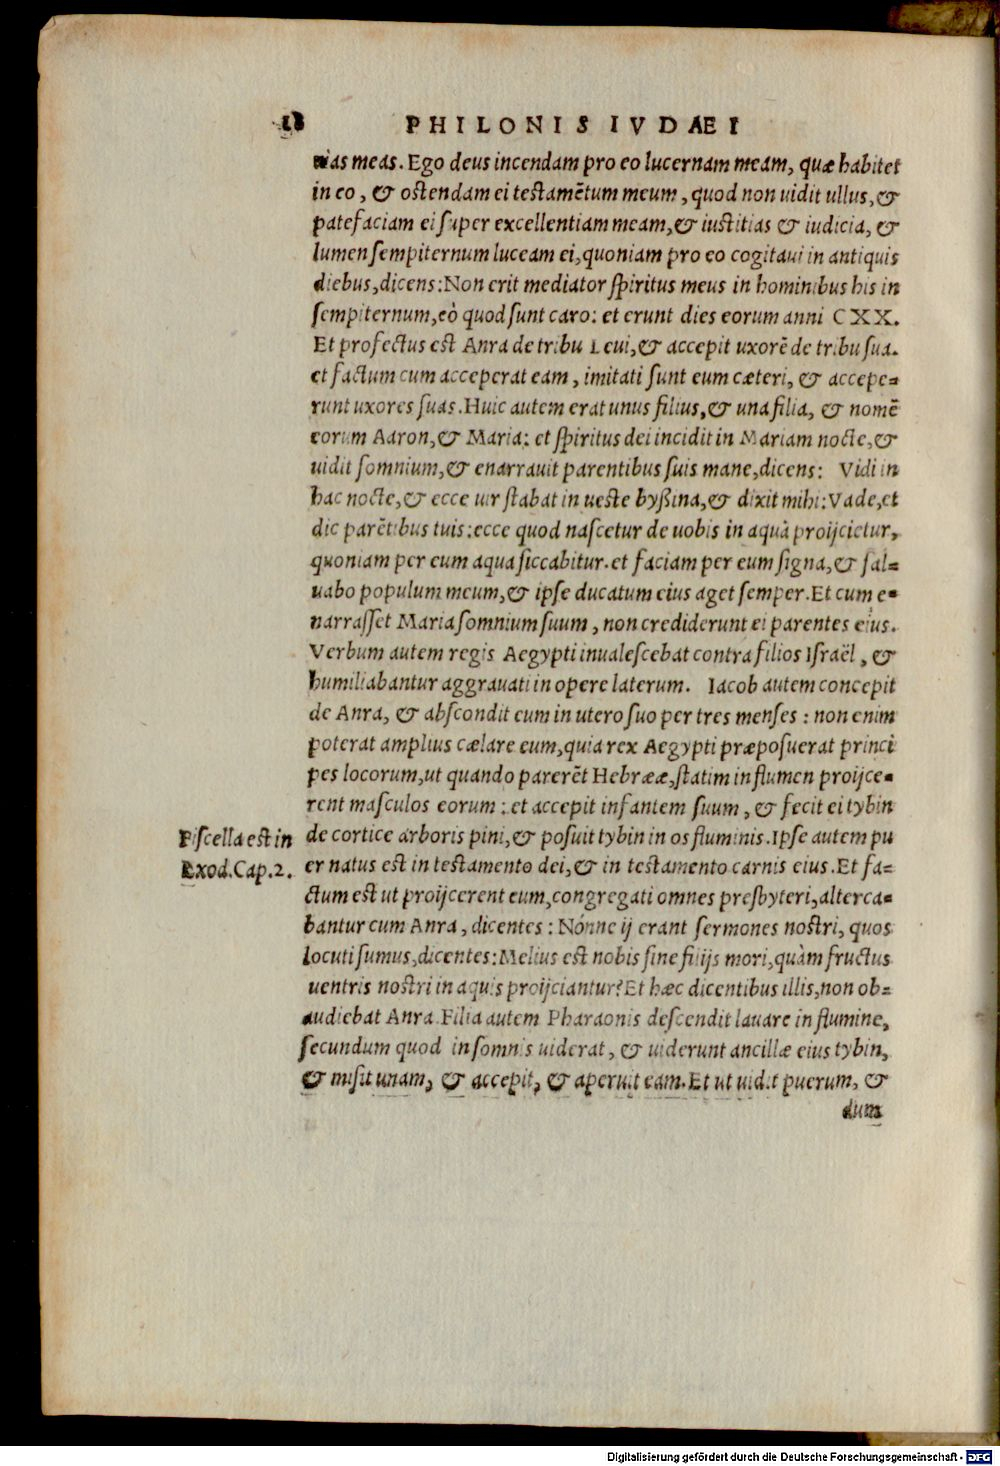 18 PHILONIS IVDAEI
uias meas. Ego deus incendam pro eo lucernam meam, quæ habitet
in eo, & ostendam ei testamētum meum, quod non uidit ullus, &
patefaciam ei super excellentiam meam, & iustitias & iudicia, &
lumen sempiternum luceam ei, quoniam pro eo cogitaui in antiquis
diebus, dicens: Non erit mediator spiritus meus in hominibus his in
sempiternum, eò quod sunt caro: et erunt dies eorum anni CXX.
Et profectus est Anra de tribu Leui, & accepit uxorē de tribu sua.
et factum cum acceperat eam, imitati sunt eum cæteri, & accepe=
runt uxores suas. Huic autem erat unus filius, & una filia, & nomē
eorum Aaron, & Maria: et spiritus dei incidit in Mariam nocte, &
uidit somnium, & enarrauit parentibus suis mane, dicens: Vidi in
hac nocte, & ecce uir stabat in ueste byßina, & dixit mihi: Vade, et
dic parētibus tuis: ecce quod nascetur de uobis in aquà proijcietur,
quoniam per eum aqua siccabitur. et faciam per eum signa, & sal=
uabo populum meum, & ipse ducatum eius aget semper. Et cum e=
narrasset Maria somnium suum, non crediderunt ei parentes eius.
Verbum autem regis Aegypti inualescebat contra filios Israël, &
humiliabantur aggrauati in opere laterum. Iacob autem concepit
de Anra, & abscondit eum in utero suo per tres menses: non enim
poterat amplius cælare eum, quia rex Aegypti præposuerat princi
pes locorum, ut quando parerēt Hebrææ, statim in flumen proijce=
rent masculos eorum: et accepit infantem suum, & fecit ei tybin
de cortice arboris pini, & posuit tybin in os fluminis. Ipse autem pu
er natus est in testamento dei, & in testamento carnis eius. Et fa=
ctum est ut proijcerent eum, congregati omnes presbyteri, alterca=
bantur cum Anra, dicentes: Nónne ij erant sermones nostri, quos
locuti sumus, dicentes: Melius est nobis sine filijs mori, quàm fructus
uentris nostri in aquis proijciantur? Et hæc dicentibus illis, non ob=
audiebat Anra. Filia autem Pharaonis descendit lauare in flumine,
secundum quod in somnis uiderat, & uiderunt ancillæ eius tybin,
& misit unam, & accepit, & aperuit eam. Et ut uidit puerum, &
dum
Fiscella est in
Exod. Cap. 2.
Digitalisierung gefördert durch die Deutsche Forschungsgemeinschaft - DFG